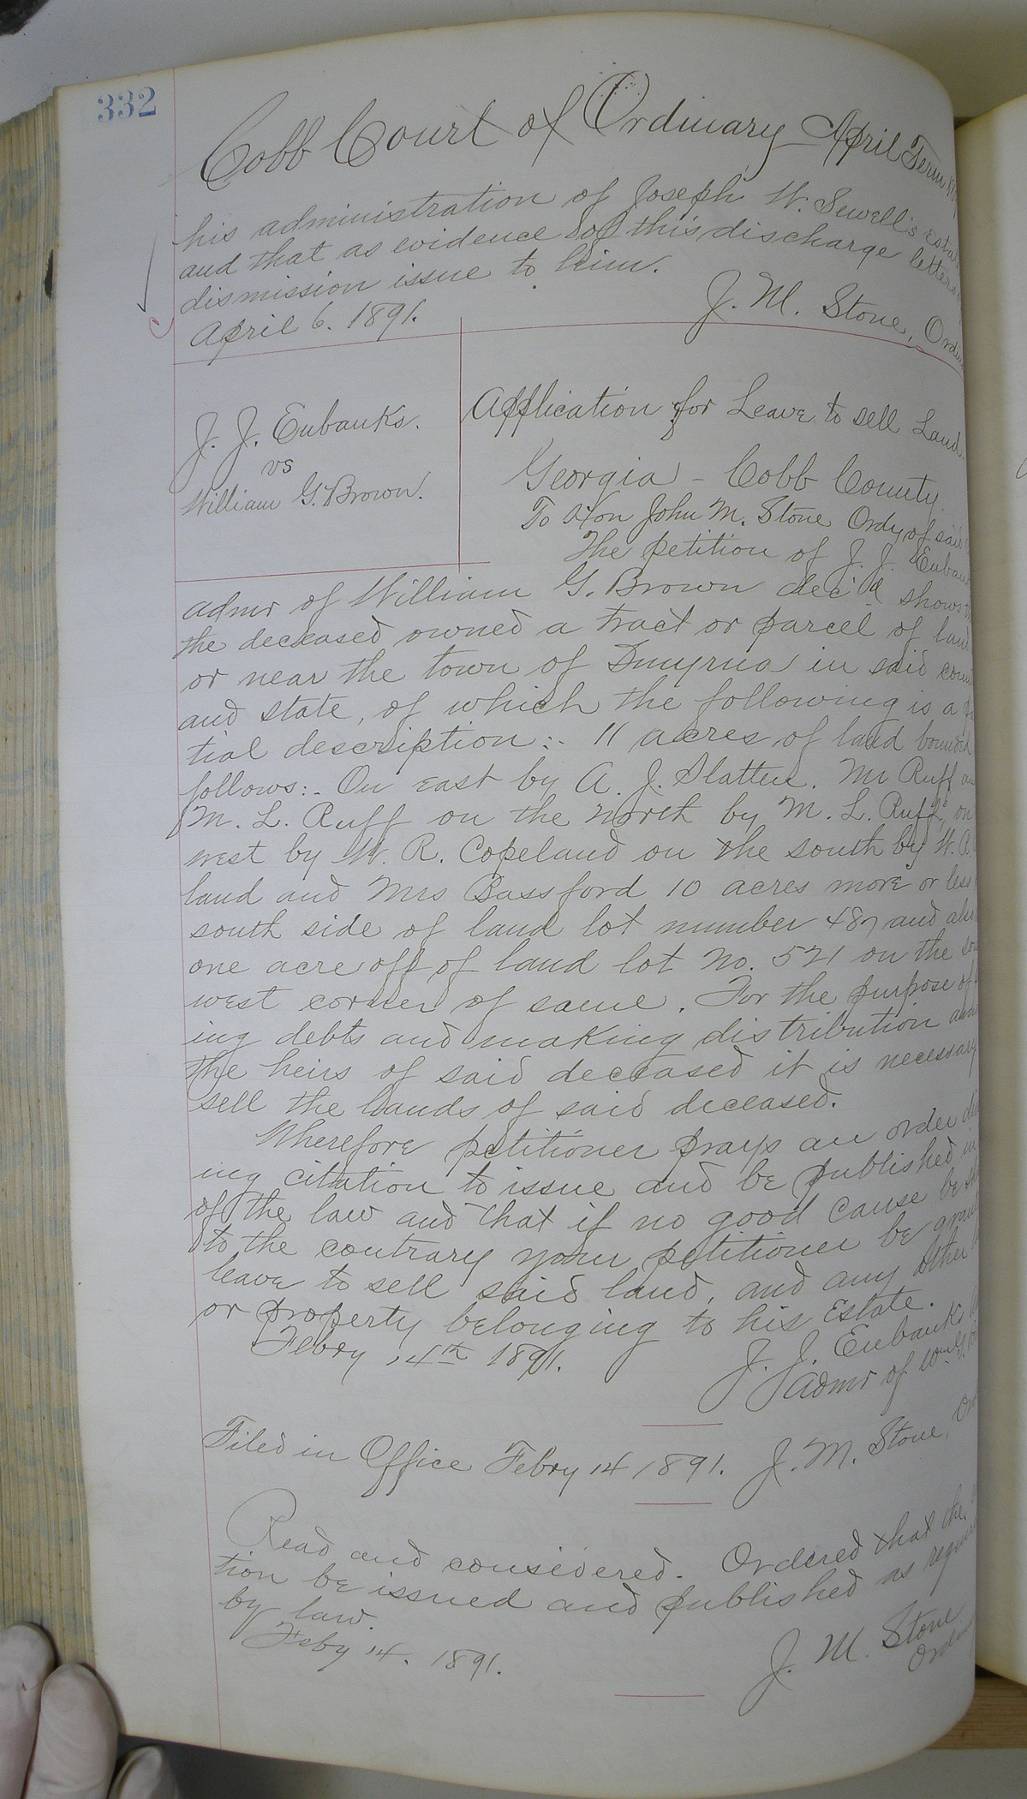 332
Cobb Court of Ordinary April Term
his administration of Joseph W. Sewell's
and that as evidence of this discharge letters
dismission issue to him.
April 6. 1891. J. M. Stone,
J. J. Eubanks.
vs
William G. Brown.
Application for Leave to sell Land
Georgia - Cobb County
To Hon John M. Stone Ordy of said
The petition of J. J.
admr of William G. Brown dec'd shows
the deceased owned a tract or parcel of land
or near the town of Smyrna in said
and state, of which the following is a
tial description:- 11 acres of land
follows:- On east by A. J. Slatten. Mr Ruff
M. L. Ruff on the North by M. L. Ruff, on
west by W. R. Copeland on the south by W.
land and Mrs Bassford 10 acres more or less
south side of land lot number 487 and
one acre off of land lot No. 521 on the
west corner of same. For the purpose of
ing debts and making distribution
the heirs of said deceased it is necessary
sell the lands of said deceased.
Wherefore petitioner prays an order
ing citation to issue and be published
of the law and that if no good cause be
to the contrary your petitioner be
leave to sell said land, and any other
or property belonging to his Estate.
Febry 14th 1891. J. J. Eubanks
admr of
Filed in Office Febry 14 1891. J. M. Stone,
Read and considered. Ordered that the
tion be issued and published as
by law.
Feby 14. 1891. J. M. Stone